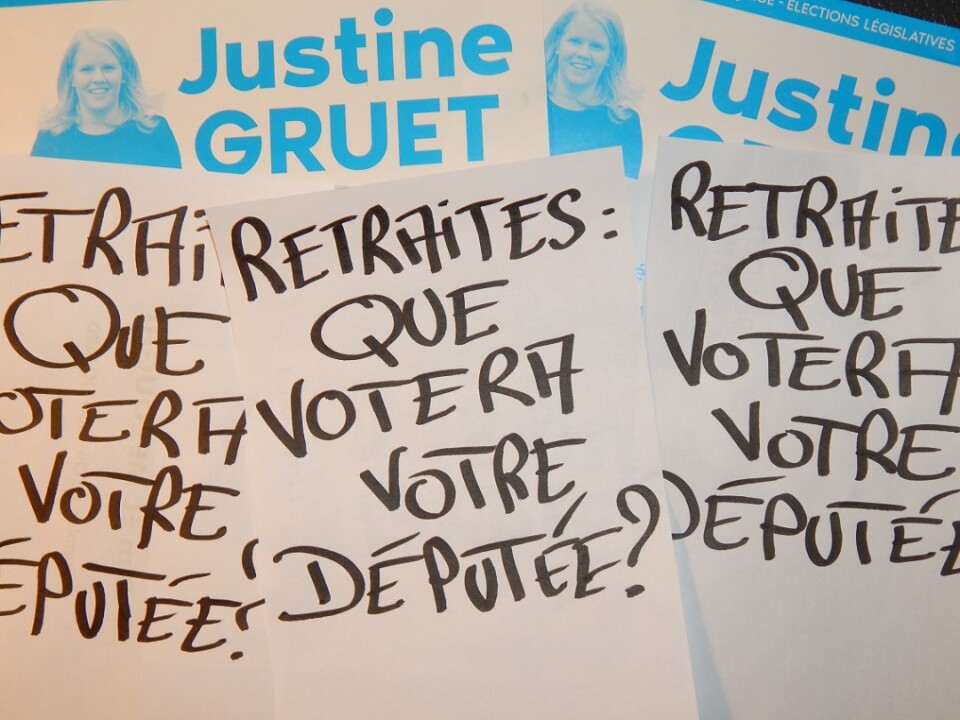 Justine
GRUET
- ÉLECTIONS LÉGISLATIVES
Justin
ETRAi
QUE
OTERA
VOTRE
ÉPUTÉE?
RETRAiTES:
QUE
VOTERA
VOTRE
DÉPUTÉE?
RETRAiTE
QUE
VOTERA
VOTRE
DÉPUTÉE